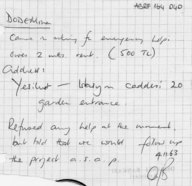 ABRF 164 040
DODEMina
Came a asking for emergency help.
Owes 2 mths. rent. (500 TL)
Address:
Yesilkoy - Istasyon caddesi 20
garden entrance.
Refused any help at the moment,
but told that we would follow up
the project a.s.a.p.